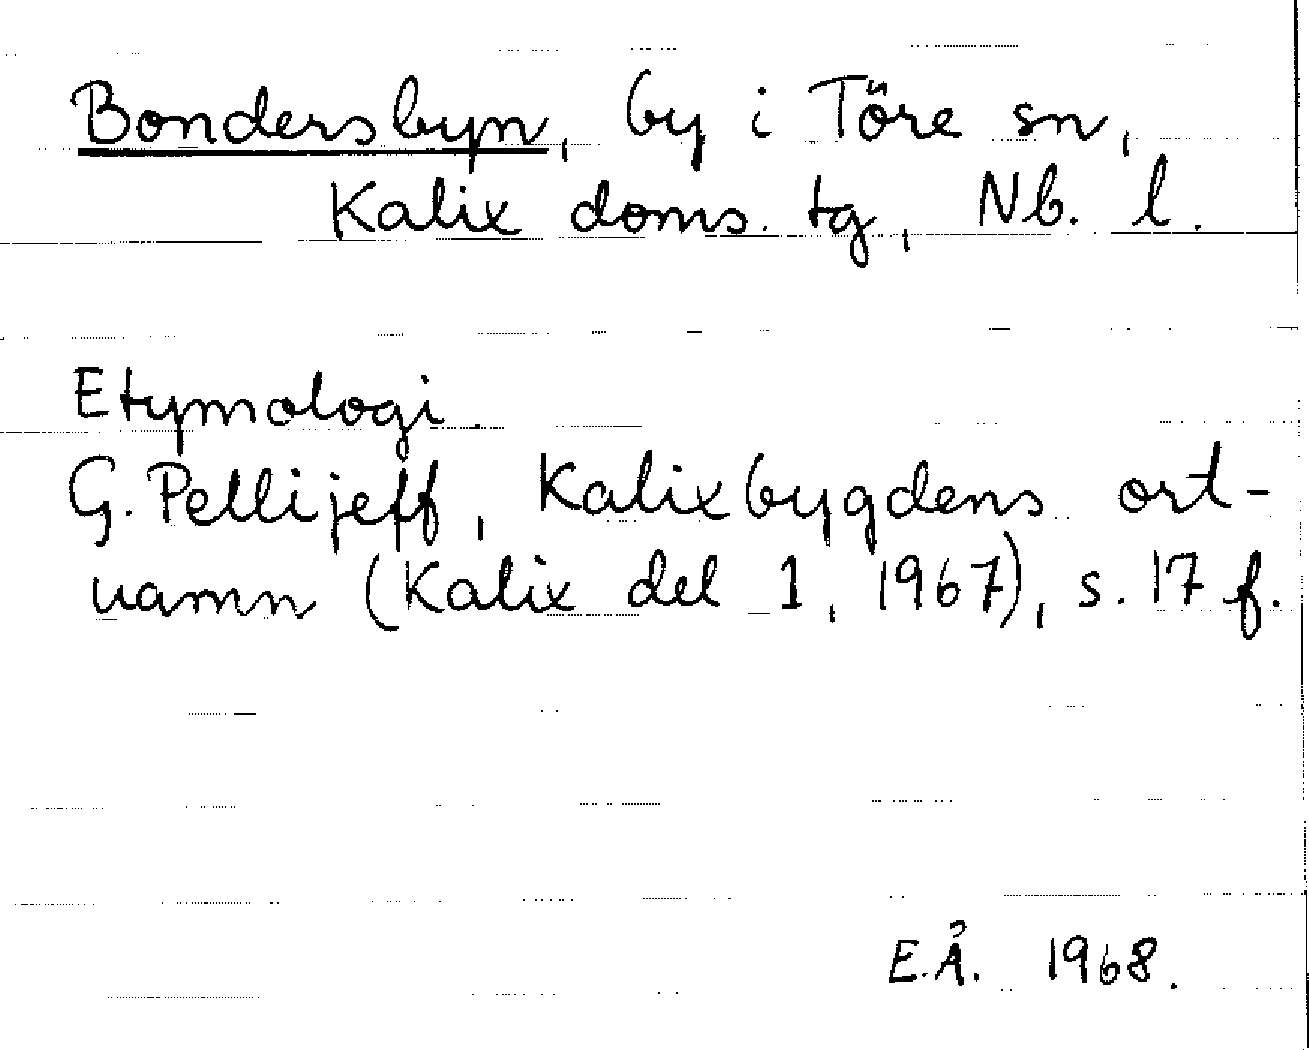 Bondersbyn, by i Töre sn,
Kalix doms. tg, Nb. l.
Etymologi.
G. Pellijeff, Kalixbygdens ort-
namn (Kalix del 1, 1967), s. 17 f.
E.Å. 1968.